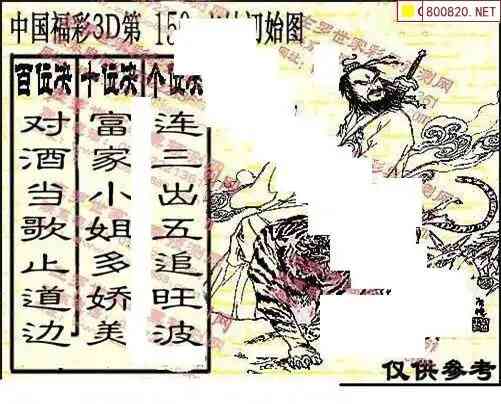 800820.NET
中国福彩3D第 150 始图
百位决
对酒当歌止道边
十位决
富家小姐多娇美
个位决
连三出五追旺波
仅供参考